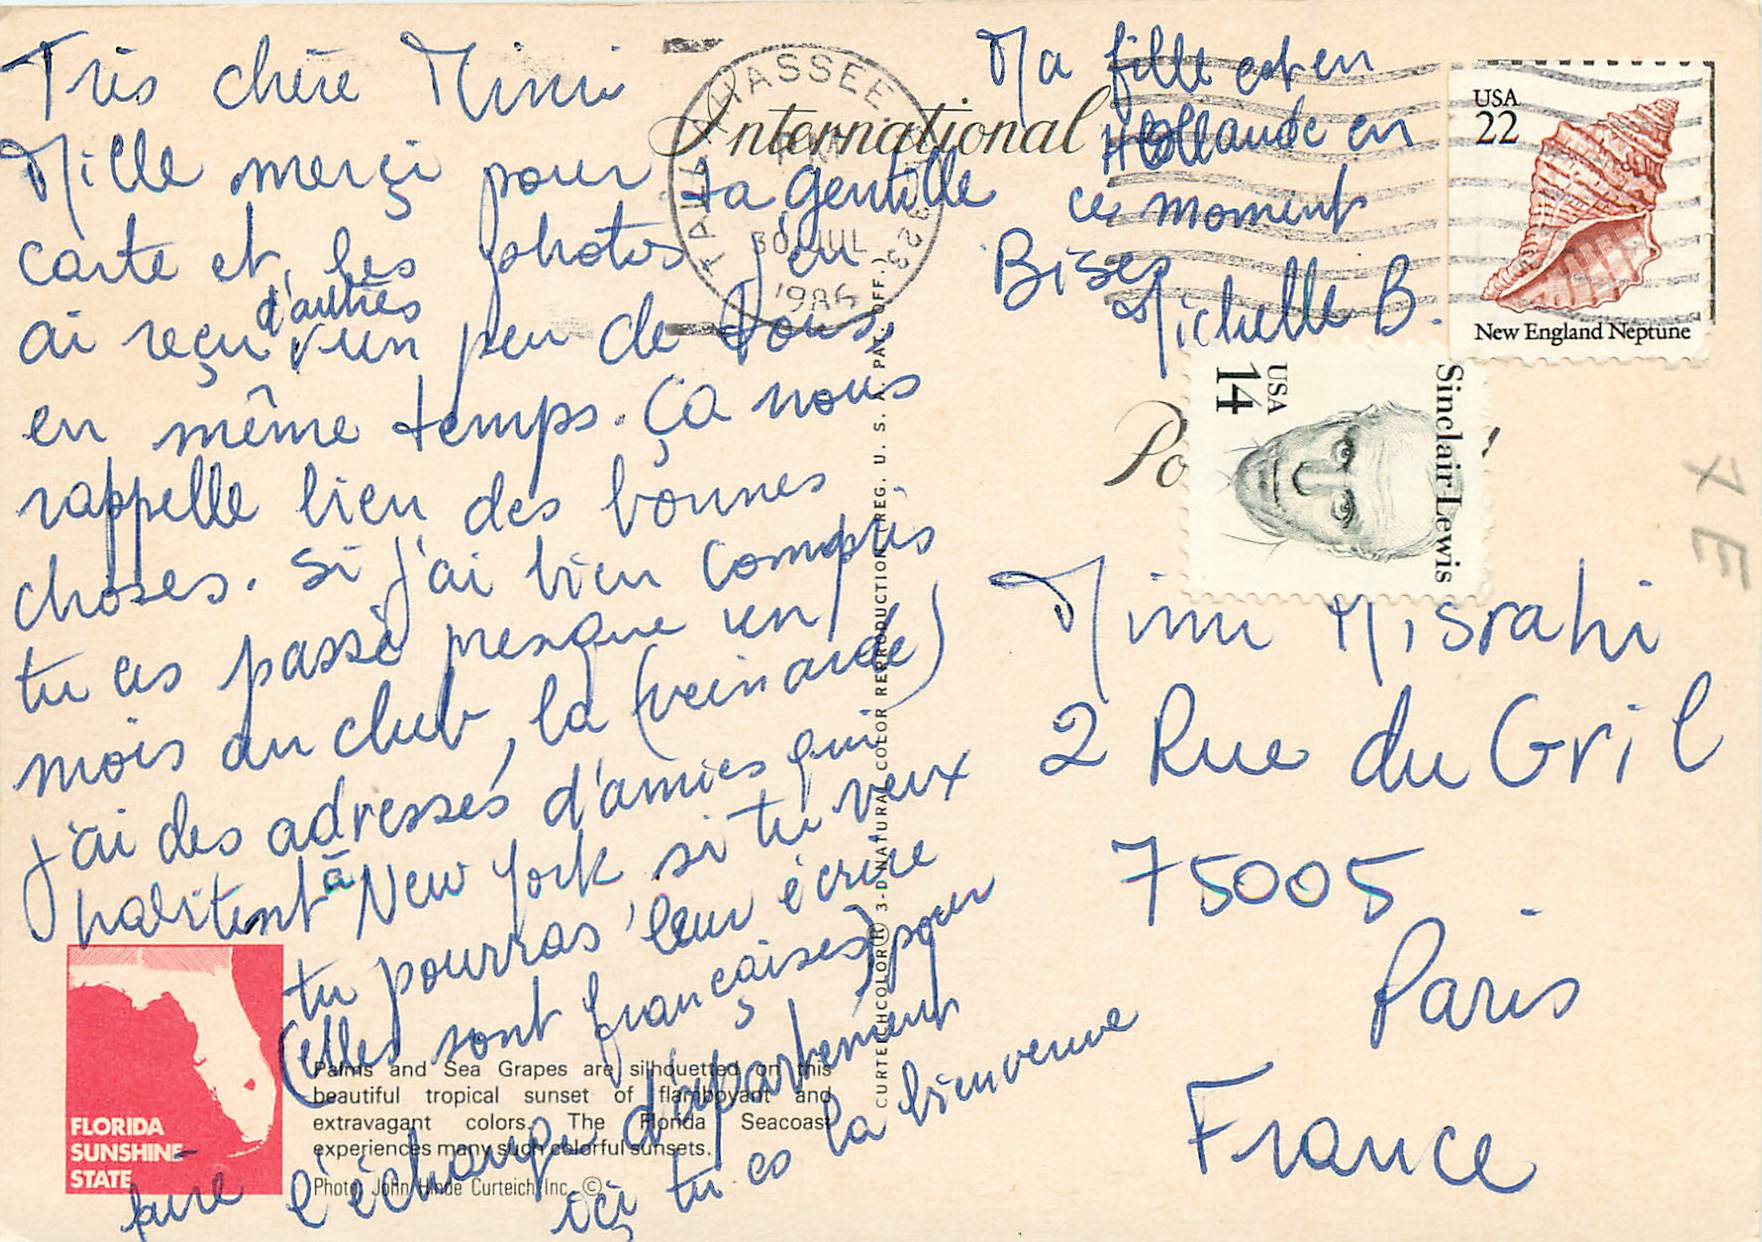 Très chère Mimi
Mille merçi pour ta gentille
carte et les photos j'en
ai reçu d'autres un peu de tous
en même temps. Ça nous
rappelle bien des bonnes
choses. Si j'ai bien compris
tu as passé presque un
mois au club, la (veinarde)
j'ai des adresses d'amies qui
habitent à New York si tu veux
tu pourras leur écrire
(elles sont françaises) pour
faire l'échange d'apartement
içi tu es la bienvenue
Ma fille est en
Hollande en
ce moment
Bises
Michelle B.
International
Po
TALLAHASSEE
30 JUL
1986
323
USA
22
New England Neptune
USA
14
Sinclair Lewis
Mimi Misrahi
2 Rue du Gril
75005
Paris
France
CURTEICHCOLOR® 3-D NATURAL COLOR REPRODUCTION (REG. U. S. A. PAT. OFF.)
FLORIDA
SUNSHINE
STATE
Palms and Sea Grapes are silhouetted on this
beautiful tropical sunset of flamboyant and
extravagant colors. The Florida Seacoast
experiences many such colorful sunsets.
Photo: John Hinde Curteich, Inc. ©
7 E